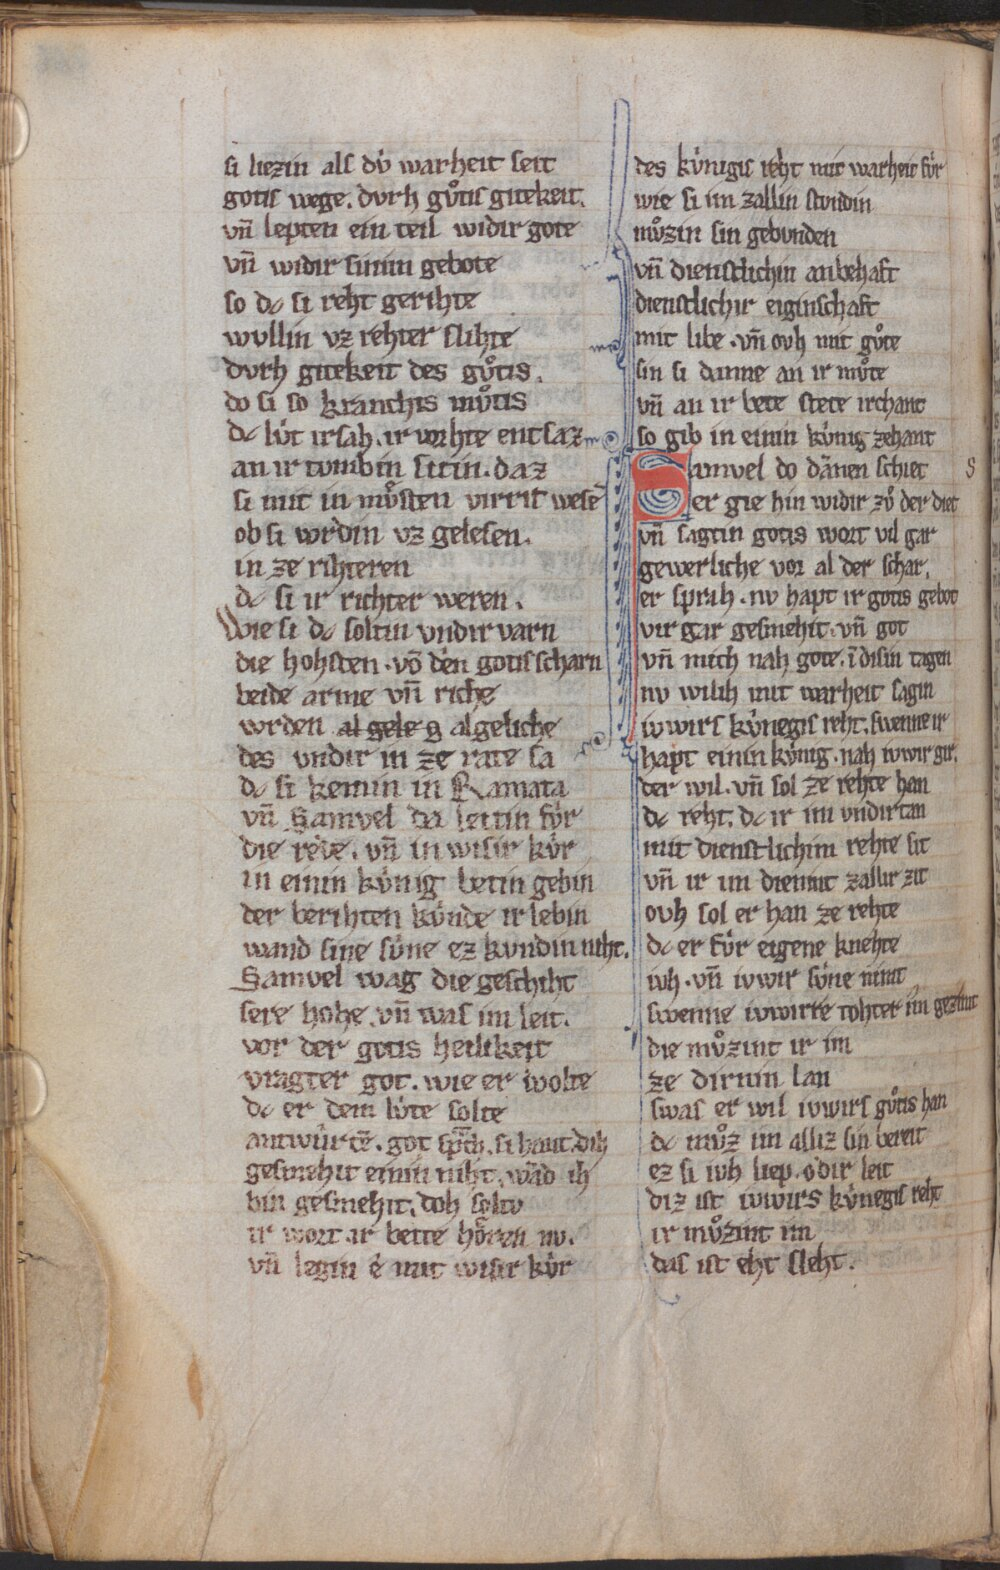 si liezin als dv́ warheit seit
gotis wege. dvrh gv̊tis gitekeit.
vn̄ lepten ein teil widir gote
vn̄ widir sinin gebote
so dc si reht gerihte
wvllin vz rehter slihte
dvrh gitekeit des gv̊tis.
do si so kranchis mv̊tis
dc lv́t irsah. ir vorhte entsaz
an ir tvmbin sitin. daz
si mit in mv̊sten virrit wesē
ob si wrdin vz gelesen.
in ze rihteren
dc si ir richter weren.
Wie si dc soltin vndir varn
die hohsten. vō den gotis scharn
beide arme vn̄ riche
wrden al gele g algeliche
des vndir in ze rate sa
dc si kemin in Ramata
vn̄ Samvel da leitin fv́r
die rede. vn̄ in wisir kv́r
in einin kv́nig betin gebin
der berihten kv́nde ir lebin
wand sine sv́ne ez kvndin niht.
Samvel wag die geschiht
sere hohe. vn̄ was im leit.
vor der gotis heilikeit
vragter got. wie er wolte
dc er dem lv́te solte
antwúrtē. got sprach. si hant dih
gesmehit einin niht. wād ih
bin gesmehit. doh soltv
ir wort. ir bette hören nv.
vn̄ legin é mit wisir kv́r
des kv́nigis reht mit warheit fv́r
wie si im zallin stvndin
mv̊zin sin gebvnden
vn̄ dienstlichin anbehaft
dienstlichir eiginschaft
mit libe. vn̄ ovh mit gv̊te
sin si danne an ir mv̊te
vn̄ an ir bete stete irchant
so gib in einin kv́nig zehant
Samvel do dānen schiet s
er gie hin widir zv̊ der diet
vn̄ sagtin gotis wort vil gar
gewerliche vor al der schar.
er sprah. nv hapt ir gotis gebot
vir gar gesmehit. vn̄ got
vn̄ mich nah gote. ī disin tagen
nv wilih mit warheit sagin
ivwirs kv́negis reht. swenne ir
hapt einin kv́nig. nah ivwir gir.
der wil. vn̄ sol ze rehte han
dc reht. dc ir im vndirtan
mit dienstlichim rehte sit
vn̄ ir im dienint zallir zit
ovh sol er han ze rehte
dc er fv́r eigene knehte
ivh. vn̄ ivwir sv́ne nimt
swenne ivwirre tohter im gezimt
die mv̊zint ir im
ze dirnin lan
swas er wil ivwirs gv̊tis han
dc mv̊z im alliz sin bereit
ez si ivh liep. odir leit
diz ist ivwirs kv́negis reht
ir mv̊zint im
das ist eht sleht.